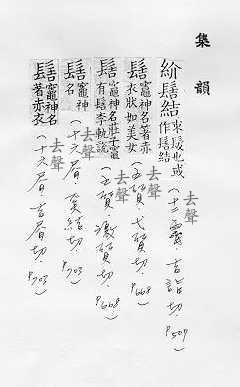 集韻
紒髻結 束髮也或作髻結 去聲(十二霽.吉詣切.P507)
髻 竈神名著赤衣狀如美女 去聲(五質.弋質切.P668)
髻 竈神名莊子竈有髻李軌説 去聲(五質.激質切.P668)
髻 竈神名 去聲(十六屑.奚結切.P703)
髻 竈神名著赤衣 去聲(十六屑.吉屑切.P703)